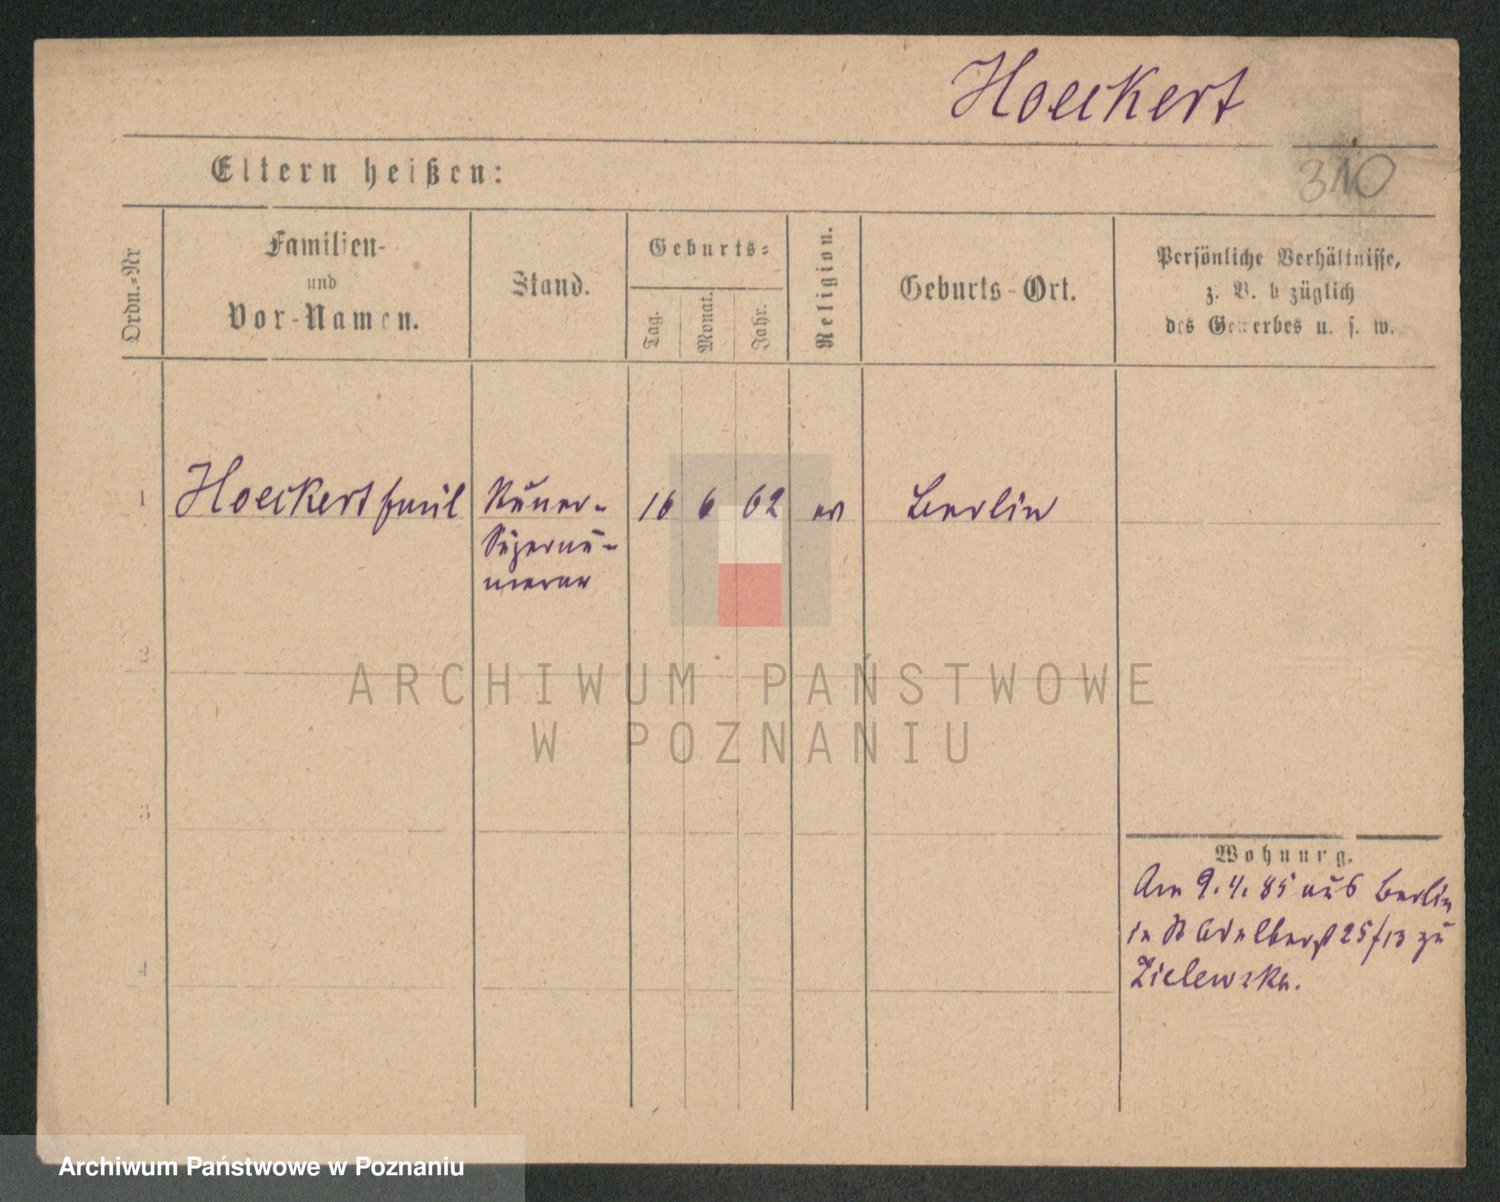 Hoeckert
310
Eltern heißen:
Ordn.-Nr
Familien-
und
Vor-Namen.
Stand.
Geburts-
Tag.
Monat.
Jahr.
Religion.
Geburts-Ort.
Persönliche Verhältnisse,
z. B. bezüglich
des Gewerbes u. s. w.
1
Hoeckert Emil
Supernu-
merar
16 6 62
ev
Berlin
2
3
4
Wohnung.
Am 9.4.85 aus Berlin
in St Adalbertst 25/13 zu
Zielewska.
ARCHIWUM PAŃSTWOWE
W POZNANIU
Archiwum Państwowe w Poznaniu